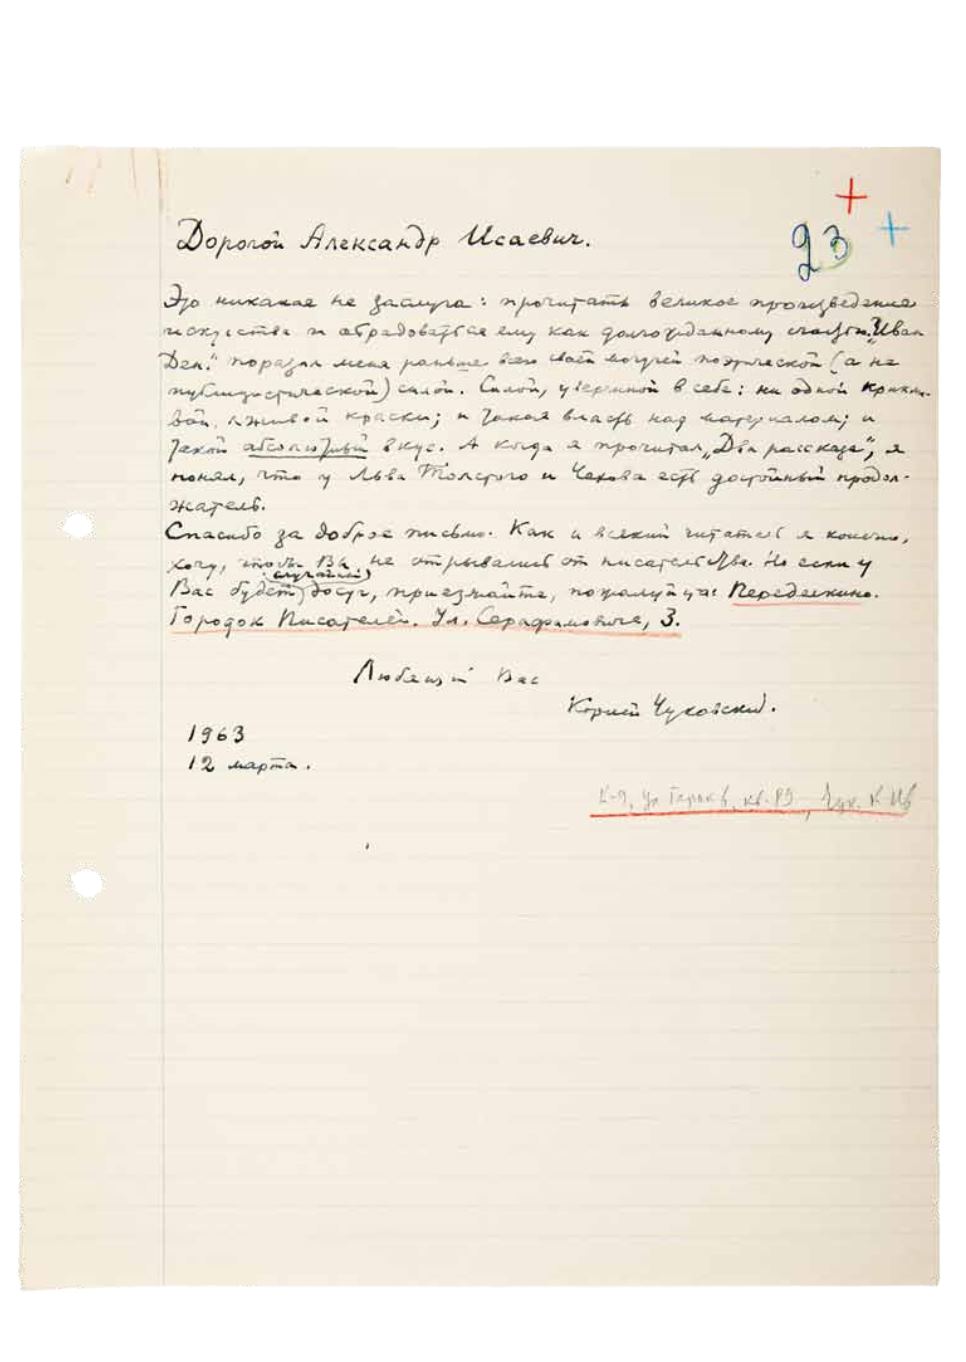 +
23 +
Дорогой Александр Исаевич.
Это никакая не заслуга: прочитать великое произведение
искусства и обрадоваться ему как долгожданному счастью. „Иван
Ден.“ поразил меня раньше всего своей могучей поэтической (а не
публицистической) силой. Силой, уверенной в себе: ни одной крикли-
вой, лживой краски; и такая власть над материалом; и
такой абсолютный вкус. А когда я прочитал „Два рассказа“, я
понял, что у Льва Толстого и Чехова есть достойный продол-
жатель.
Спасибо за доброе письмо. Как и всякий читатель я конечно,
хочу, чтобы Вы не отрывались от писательства. Но если у
(случайный)
Вас будет досуг, приезжайте, пожалуйста: Переделкино.
Городок Писателей. Ул. Серафимовича, 3.
Любящий Вас
Корней Чуковский.
1963
12 марта.
К-9, ул Горьк, кв. 89, Чук. К Ив